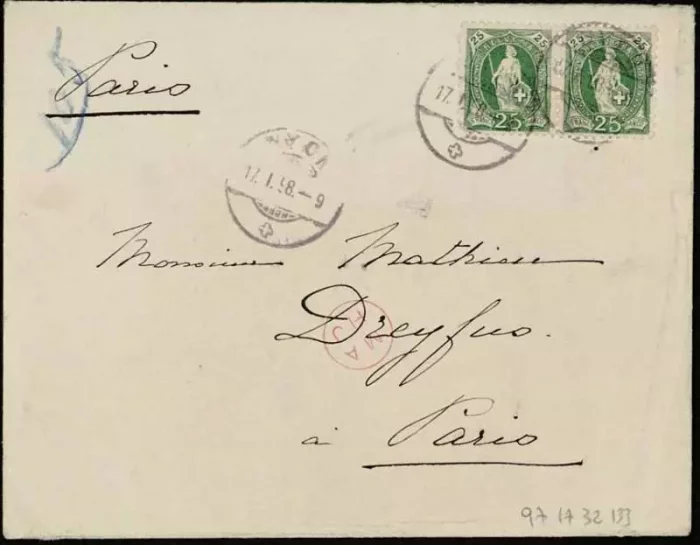 Paris
25 25
25
25 25
25
17. I. 98. – 6
Monsieur Mathieu
Dreyfus.
à Paris
MAHJ
97 17 32 133